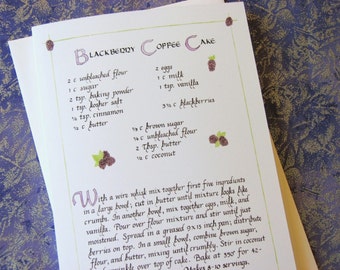 Blackberry Coffee Cake
2 c unbleached flour
1 c sugar
2 tsp. baking powder
1 tsp. kosher salt
½ tsp. cinnamon
½ c butter
2 eggs
1 c milk
1 tsp. vanilla
3½ c blackberries
½ c brown sugar
¼ c unbleached flour
2 Tbsp. butter
½ c coconut
With a wire whisk mix together first five ingredients
in a large bowl; cut in butter until mixture looks like
crumbs. In another bowl, mix together eggs, milk, and
vanilla. Pour over flour mixture and stir until just
moistened. Spread in a greased 9x13 inch pan; distribute
berries on top. In a small bowl, combine brown sugar,
flour, and butter, mixing until crumbly. Stir in coconut
sprinkle over top of cake. Bake at 350° for 42-
Makes 8-10 servings.